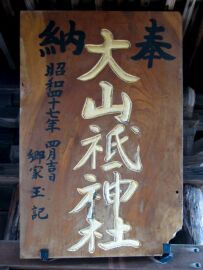 奉納
大山祗神社
昭和四十七年 四月吉日
郷家玉記